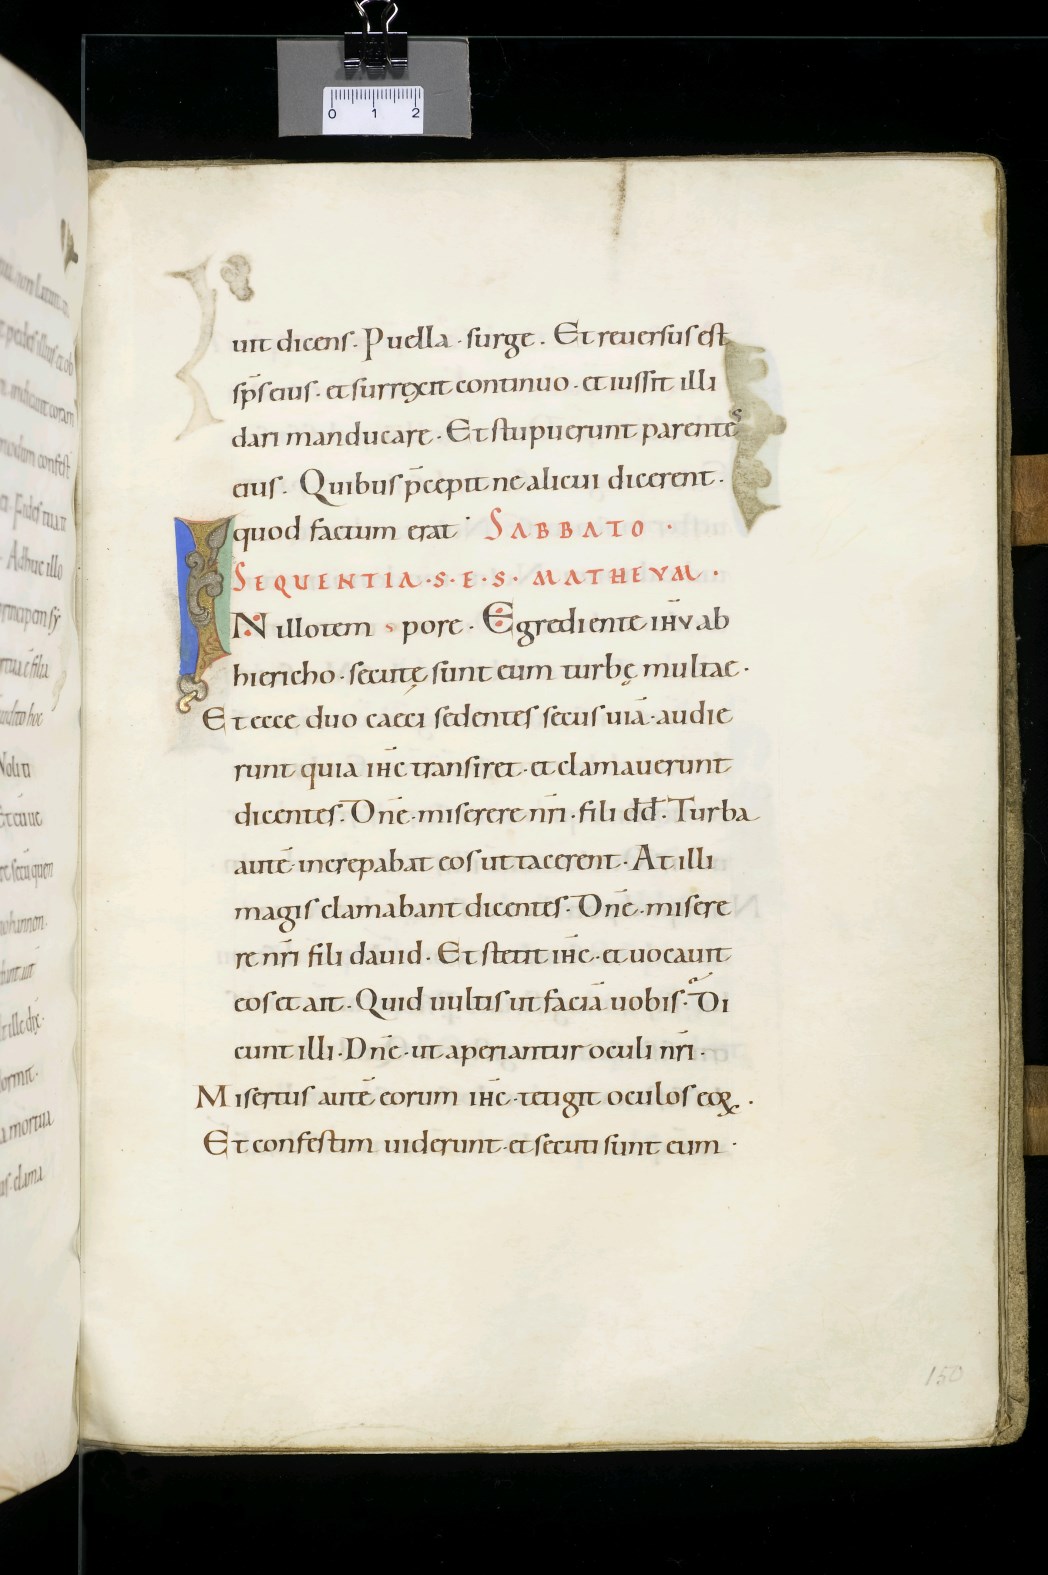 0 1 2
uit dicens. Puella · surge. Et reuersus est
sp̄s eius · et surrexit continuo · et iussit illi
dari manducare · Et stupuerunt parentes
eius. Quibus p̄cepit ne alicui dicerent.
quod factum erat SABBATO ·
SEQUENTIA · S · E · S · MATHEVM ·
IN illo tem s pore · Egrediente iħv ab
hiericho · secutę sunt eum turbę multae ·
Et ecce duo caeci sedentes secus uiā · audie
runt quia iħc transiret · et clamauerunt
dicentes. Dn̄e · miserere nr̄i · fili dd̄. Turba
autē increpabat eos ut tacerent · At illi
magis clamabant dicentes. Dn̄e · misere
re nr̄i fili dauid · Et stetit iħc · et uocauit
eos et ait · Quid uultis ut faciā uobis · Di
cunt illi · Dn̄e · ut aperiantur oculi nr̄i ·
Misertus autē eorum iħc · tetigit oculos eoꝝ.
Et confestim uiderunt · et secuti sunt eum ·
150